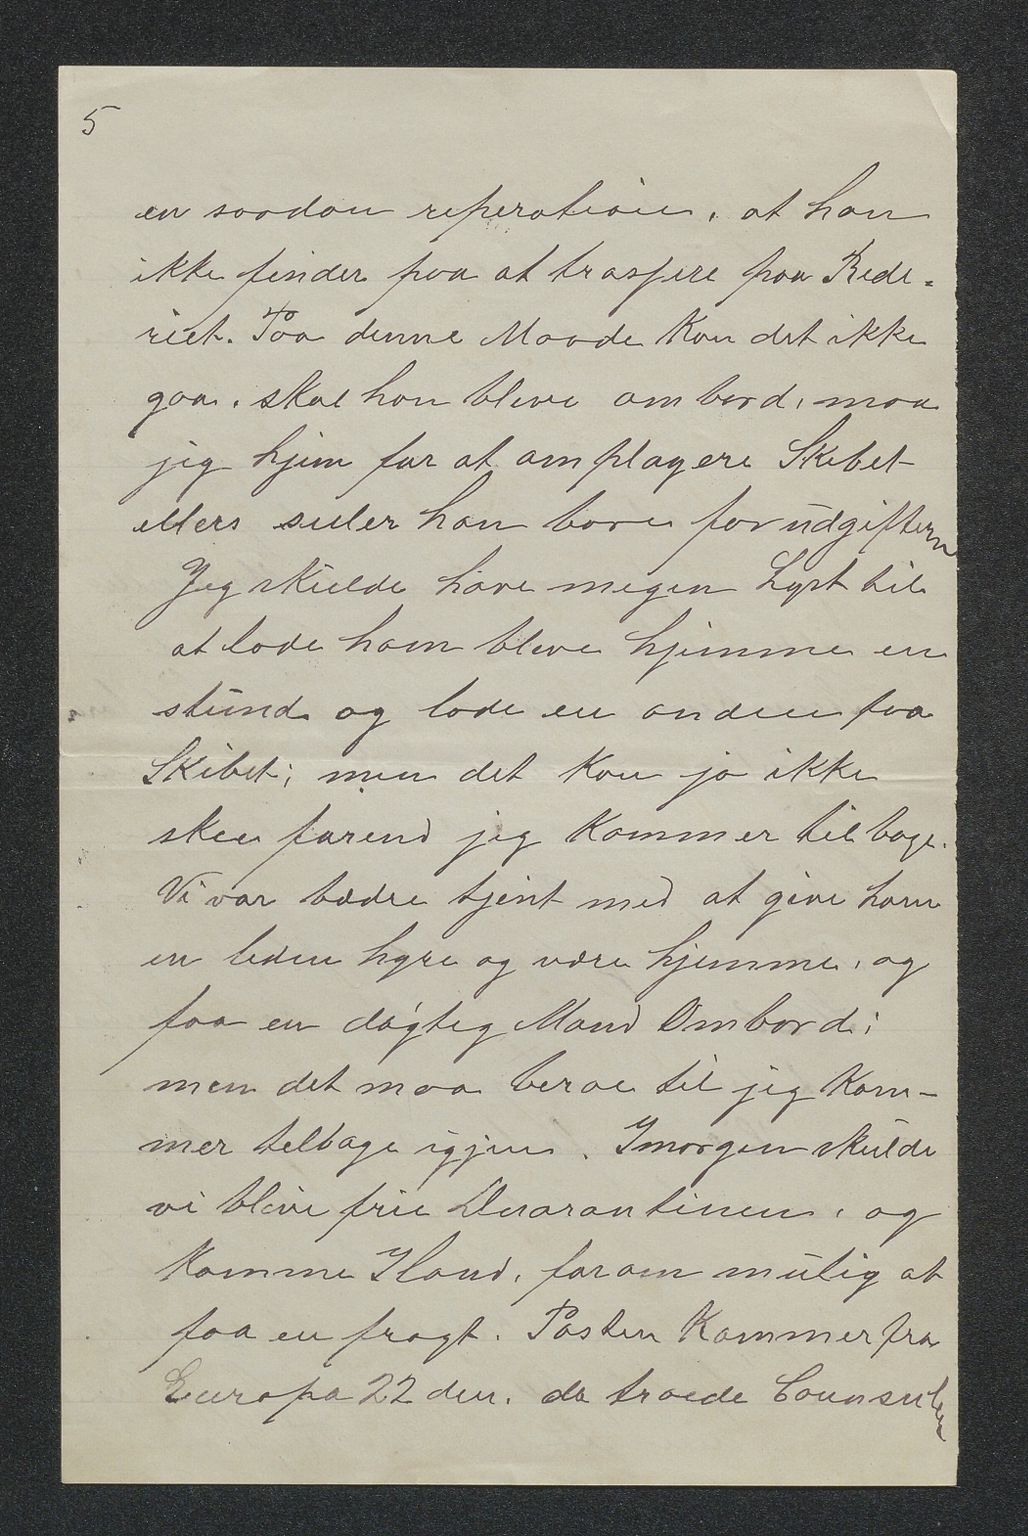 5
en saadan reperation, at han
ikke finder paa at trasfere paa Rede-
riet. Paa denne Maade Kan det ikke
gaa. skal han blive ombord, maa
jeg hjem for at omplagere Skibet
ellers suler han bare for udgiftern
Jeg skulde have megen Lyst til
at lade ham bleve hjemme en
stund og lade en anden faa
Skibet; men det Kan jo ikke
skee førend jeg Kommer tilbage.
Vi var bædre tjent med at give ham
en liden hyre og være hjemme, og
faa en dögteg Mand Ombord;
men det maa beroe til jeg Kom-
mer telbage igjen. Imorgen skulde
vi blive frie Quarantinen, og
Komme Iland, forom mulig at
faa en fragt. Posten Kommer fra
Europa 22 den. da troede Counsulen